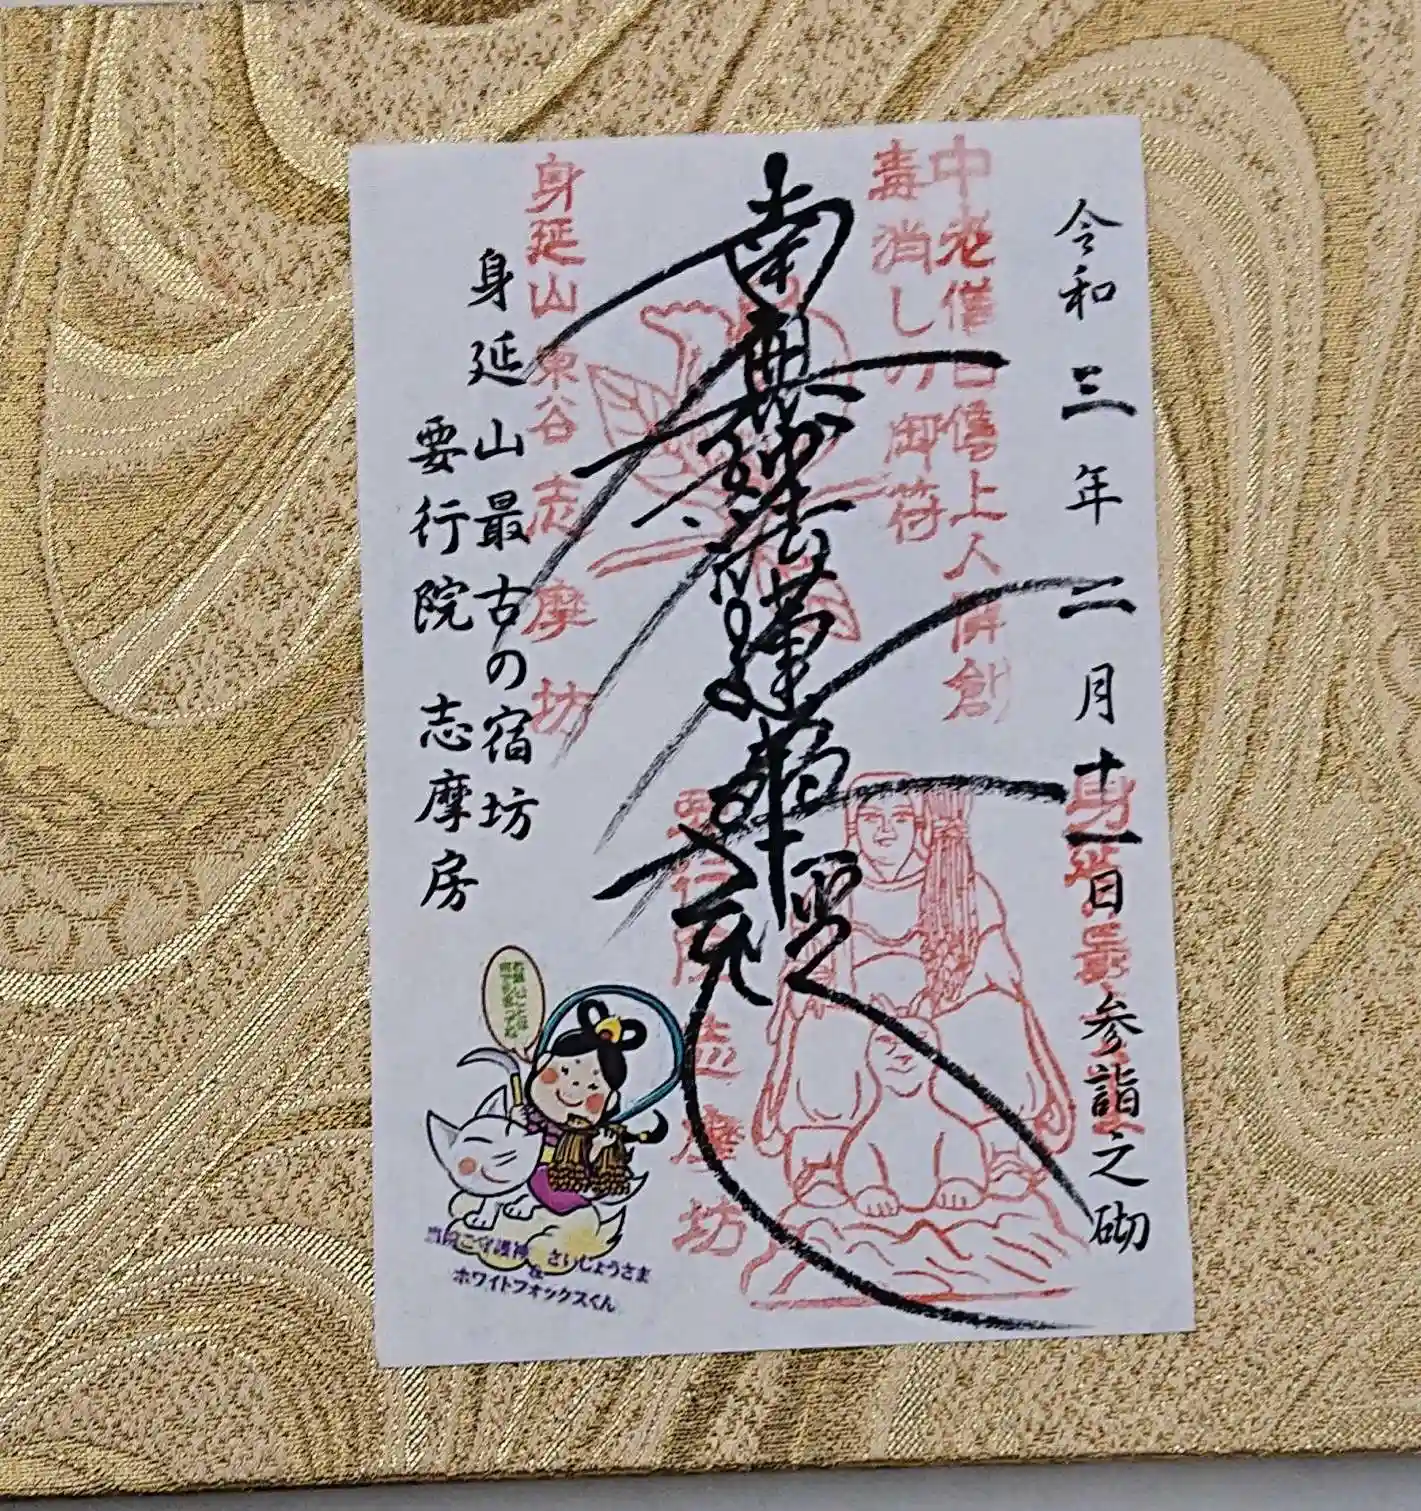 令和三年二月十一日 参詣之砌
中老僧日傳上人開創
毒消しの御符
南無妙法蓮華経
身延山東谷志摩坊
身延山最古の宿坊
要行院 志摩房
当院ご守護神 さいじょうさま
&
ホワイトフォックスくん